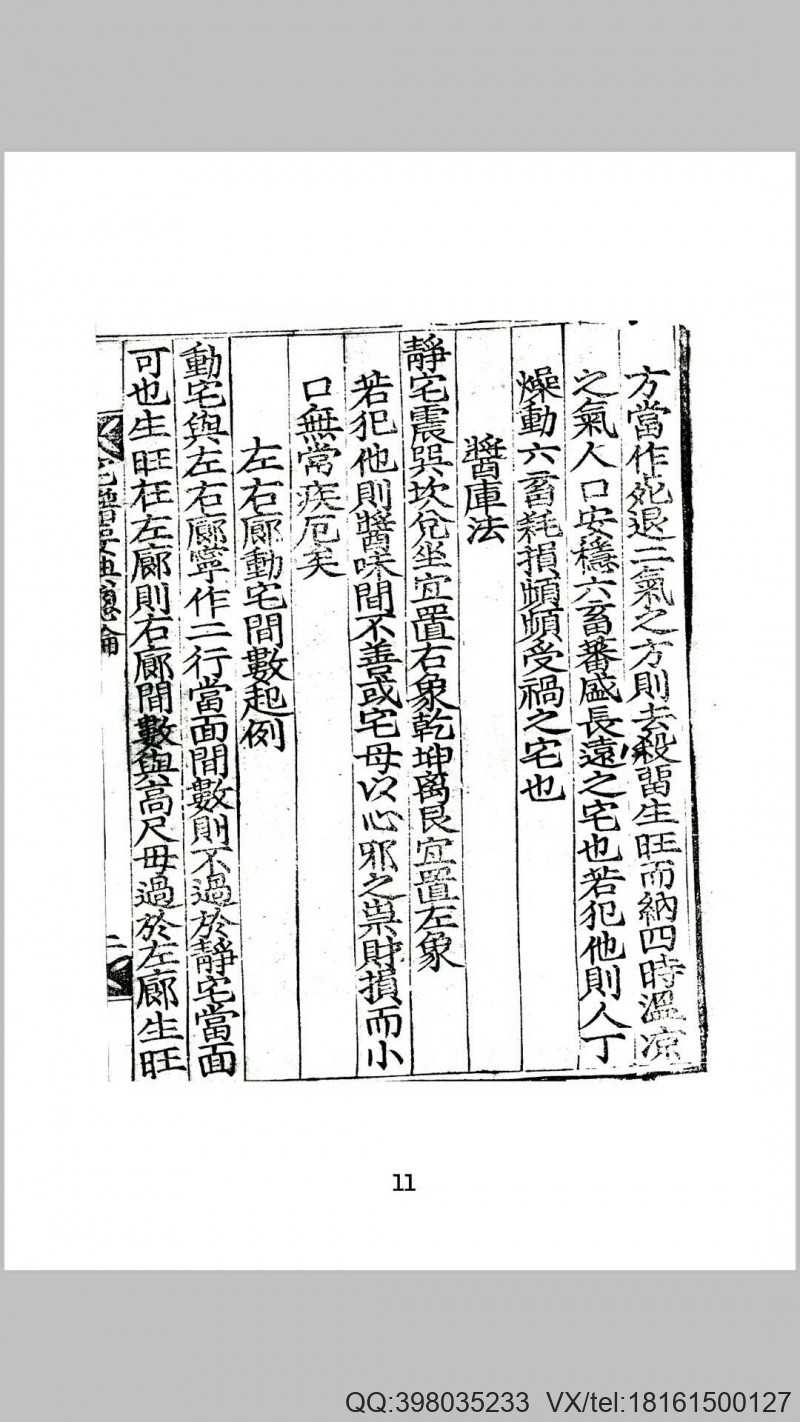 方當作死退二氣之方則去殺留生旺而納四時溫凉
之氣人口安穩六畜蕃盛長遠之宅也若犯他則人丁
燥動六畜耗損頻頻受禍之宅也
醬庫法
靜宅震巽坎兌坐宜置右象乾坤离艮宜置左象
若犯他則醬味間不善或宅母以心邪之祟財損而小
口無常疾厄矣
左右廊動宅間數起例
動宅與左右廊寧作二行當面間數則不過於靜宅當面
可也生旺在左廊則右廊間數與高尺毋過於左廊生旺
二
11
QQ:398035233 VX/tel:18161500127